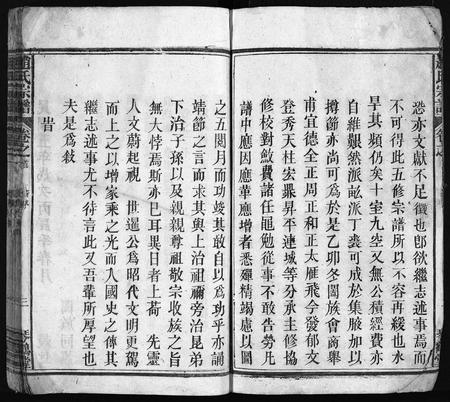 恐亦文獻不足徵也卽欲繼志述事焉而
不可得此五修宗譜所以不容再緩也水
旱其頻仍矣十室九空又無公積經費亦
自維艱然派畝派丁裘可成於集腋加以
撙節亦尚可爲於是乙卯冬闔族會商舉
甫宣德全正周正和正太雁飛今發郁文
登秀天柱宏鼎昇平連城等分承主修協
修校對斂費諸任黽勉從事不敢告勞凡
譜中應因應革應增者悉殫精竭慮以圖
之五閱月而功竣其敢自以爲功乎亦誦
靖節之言而求其與上治祖禰旁治昆弟
下治子孫以及親親尊祖敬宗收族之旨
無大悖焉斯亦巳耳異日者上荷 先靈
人文蔚起視 世暹公爲昭代文明更駕
而上之以增家乘之光而入國史之傳其
繼志述事尤不待言此又吾輩所厚望也
夫是爲敘
旹
趙氏宗譜
卷之